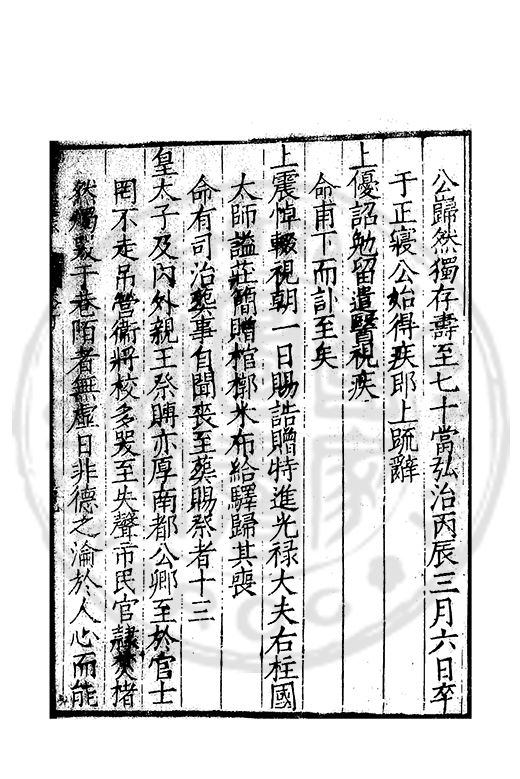 公巋然獨存壽至七十當弘治丙辰三月六日卒
于正寢公始得疾即上疏辭
上優詔勉留遣醫視疾
命甫下而訃至矣
上震悼輟視朝一日賜誥贈特進光祿大夫右柱國
太師謚莊簡贈棺槨米布給驛歸其喪
命有司治葬事自聞喪至葬賜祭者十三
皇太子及內外親王祭賻亦厚南都公卿至於官士
罔不走吊營衛將校多哭至失聲市民官隸焚楮
然燭設于巷陌者無虛日非德之淪於人心而能